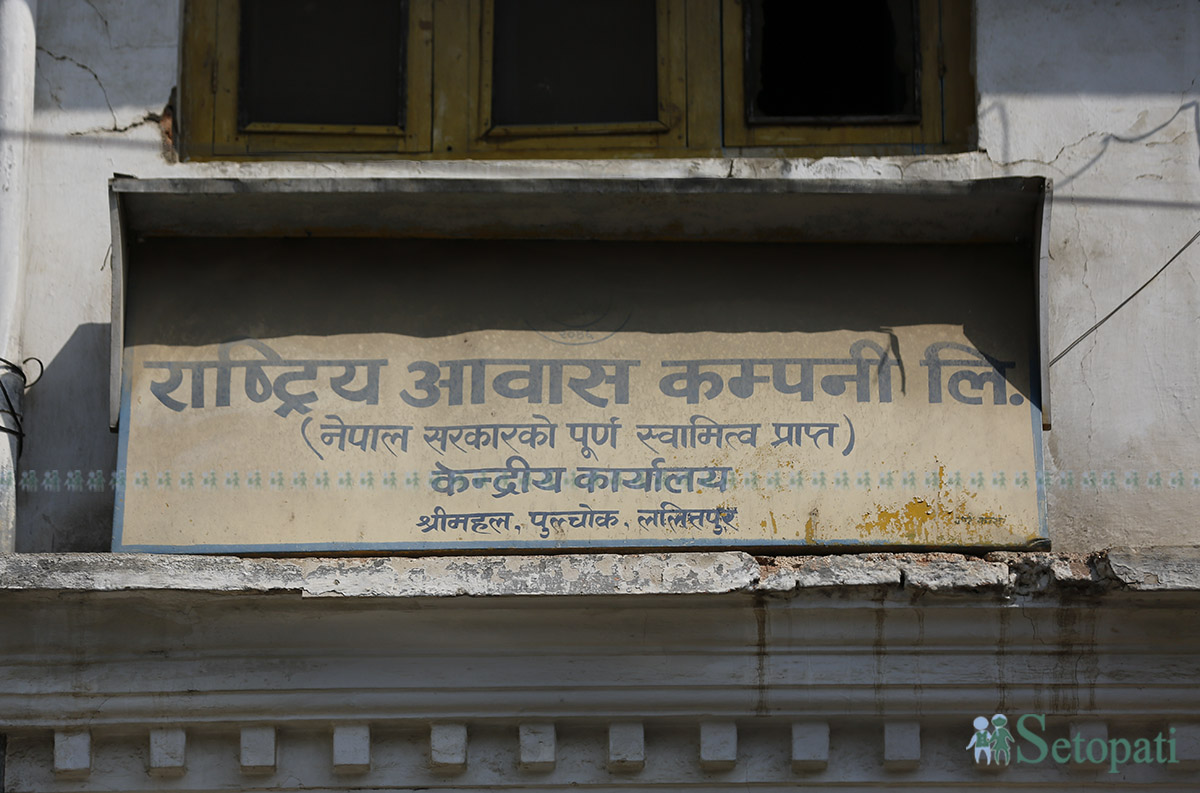 राष्ट्रिय आवास कम्पनी लि.
(नेपाल सरकारको पूर्ण स्वामित्व प्राप्त)
केन्द्रीय कार्यालय
श्रीमहल, पुल्चोक, ललितपुर
Setopati